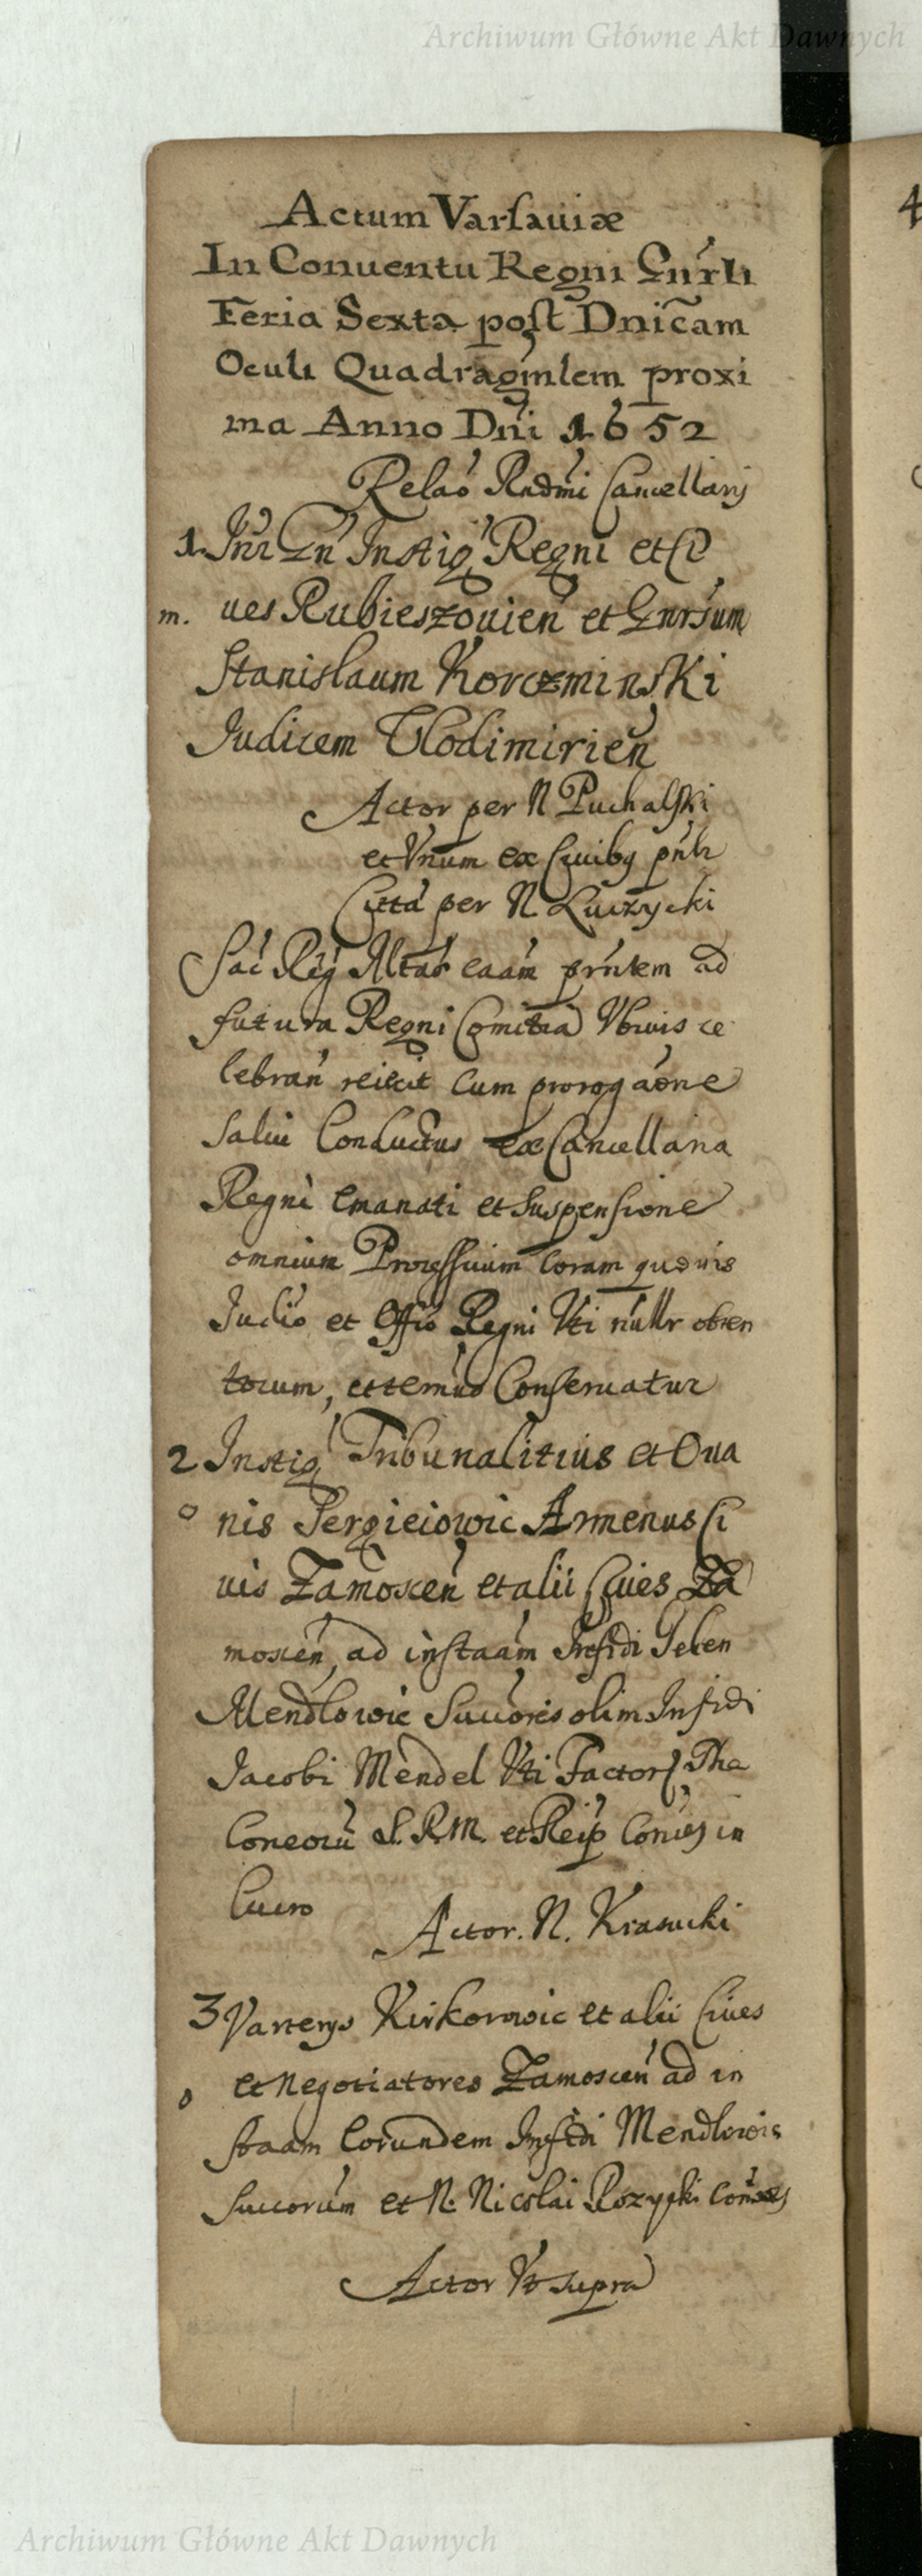 Archiwum Główne Akt Dawnych
Actum Varsauiæ
In Conuentu Regni Gnrli
Feria Sexta post Dnicam
Oculi Quadragmlem proxi
ma Anno Dni 1652
Relao Rndmi Cancellarij
1. Intr Gn Instig Regni et Ci
m. ues Rubieszouien et Gnrsum
Stanislaum Korczminski
Iudicem Vlodimirien
Actor per N Puchalski
et Vnum ex Ciuibq pntr
Citta per N Luczycki
Sac Reg Mtas caam prntem ad
futura Regni Comitia Vbiuis ce
lebran reiicit cum prorogaone
salui Conductus ex Cancellaria
Regni emanati et suspensione
omnium Processuum coram quouis
Iudio et Offio Regni Vti nullr obten
torum, et Conseruatur
2 Instig Tribunalitius et Oua
o nis Sergieiowic Armenus Ci
uis Zamoscen et alii Ciues Za
moscen, ad instaam Infidi Selen
Mendlowic Succoris olim Infidi
Iacobi Mendel Vti Factor The
S.R.M. et Reip in
Actor. N. Krasucki
3 Varterys Kirkorowic et alii Ciues
o et Negotiatores Zamoscen ad in
staam eorundem Infidi Mendlowic
Succorum et N. Nicolai
Actor Vt supra
4
Archiwum Główne Akt Dawnych